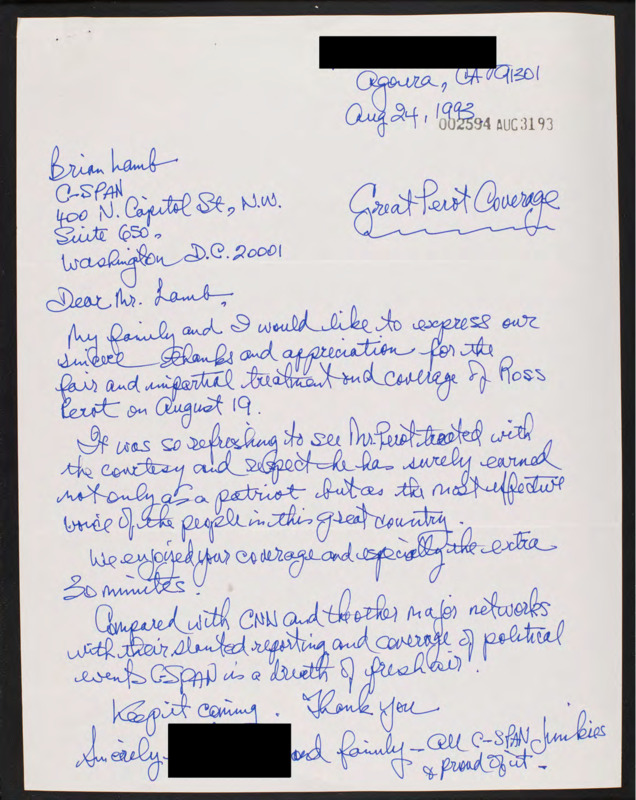 Agoura, CA 91301
Aug 24, 1993
002594 AUG 31 93
Brian Lamb
C-SPAN
400 N. Capitol St., N.W.
Suite 650.
Washington D.C. 20001
Great Perot Coverage
Dear Mr. Lamb,
My family and I would like to express our
sincere thanks and appreciation for the
fair and impartial treatment and coverage of Ross
Perot on August 19.
It was so refreshing to see Mr. Perot treated with
the courtesy and respect he has surely earned
not only as a patriot but as the most effective
voice of the people in this great country.
We enjoyed your coverage and especially the extra
30 minutes.
Compared with CNN and the other major networks
with their slanted reporting and coverage of political
events C-SPAN is a breath of fresh air.
Keep it coming. Thank you
Sincerely- and family - all C-SPAN Junkies
& proud of it -